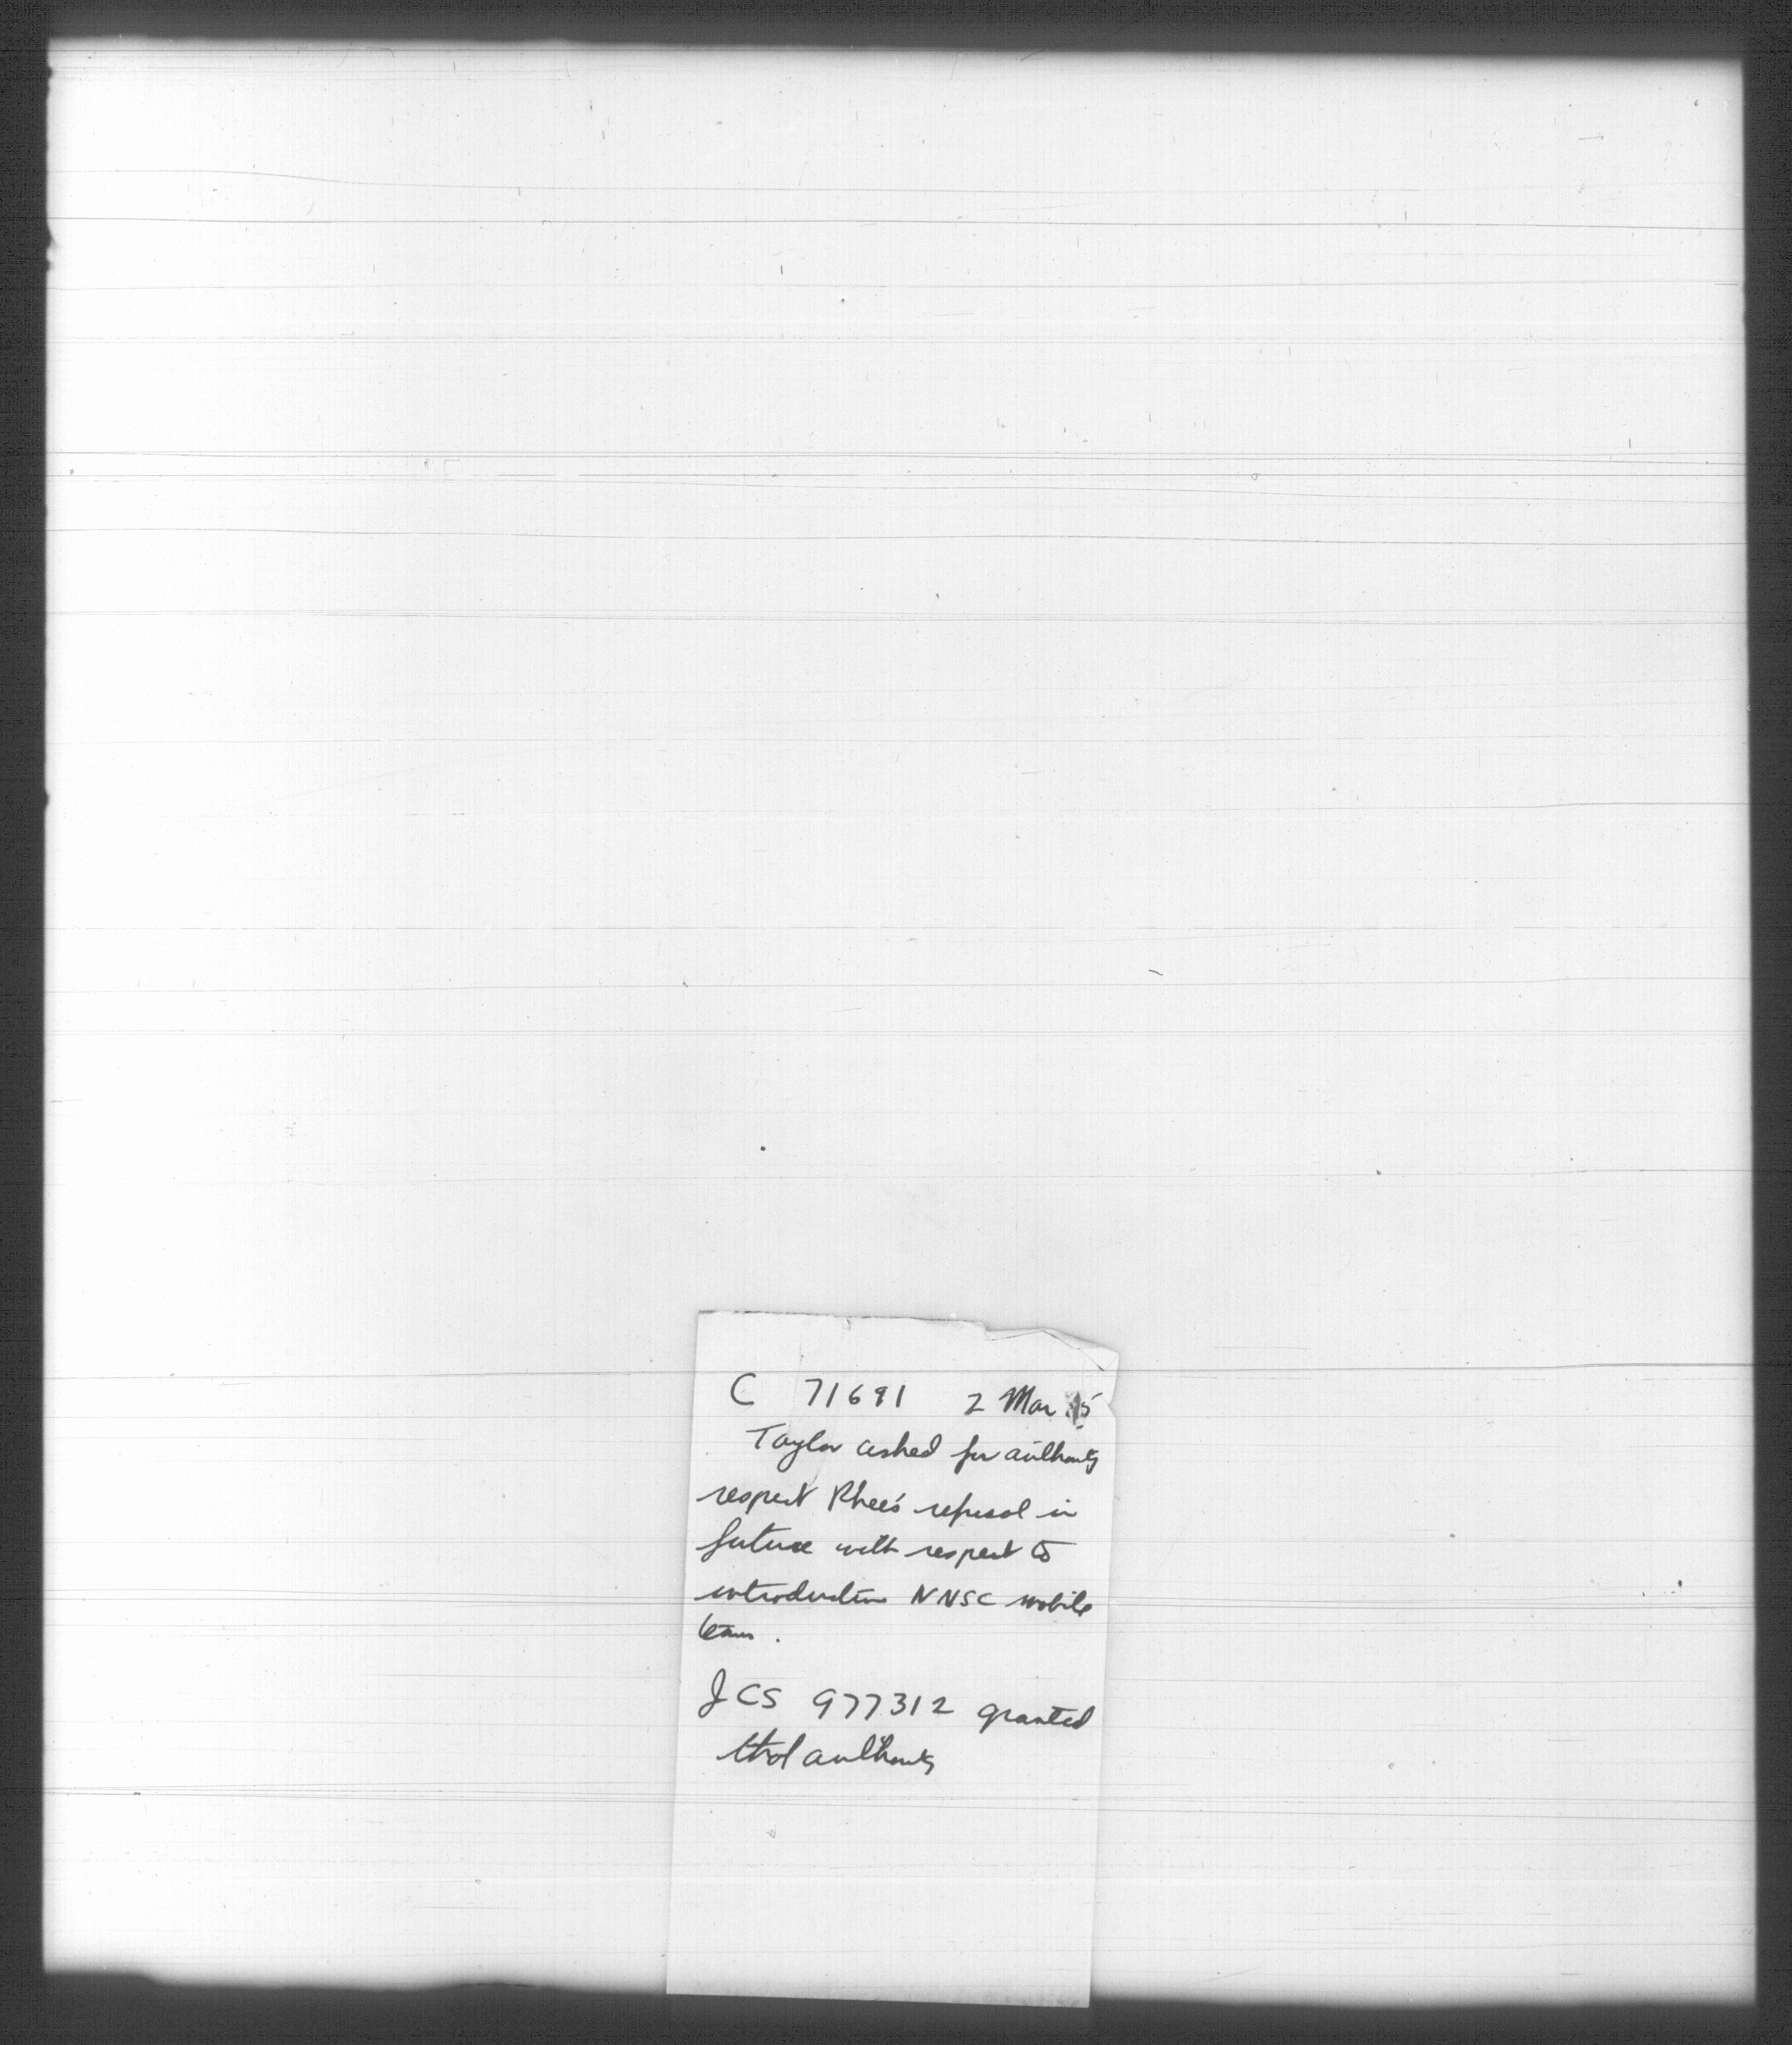 C 71691 2 Mar 55
Taylor asked for authority
respect Rhee's refusal in
future with respect to
introduction NNSC mobile
teams.
JCS 977312 granted
that authority